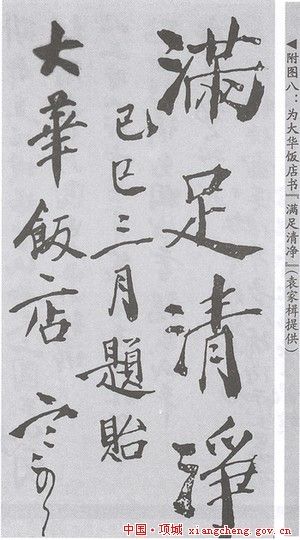 ◀附图八：为大华饭店书『满足清净』(袁家楫提供)
滿足清淨
己巳三月題貽
大華飯店 寒雲
中国·项城 xiangcheng.gov.cn